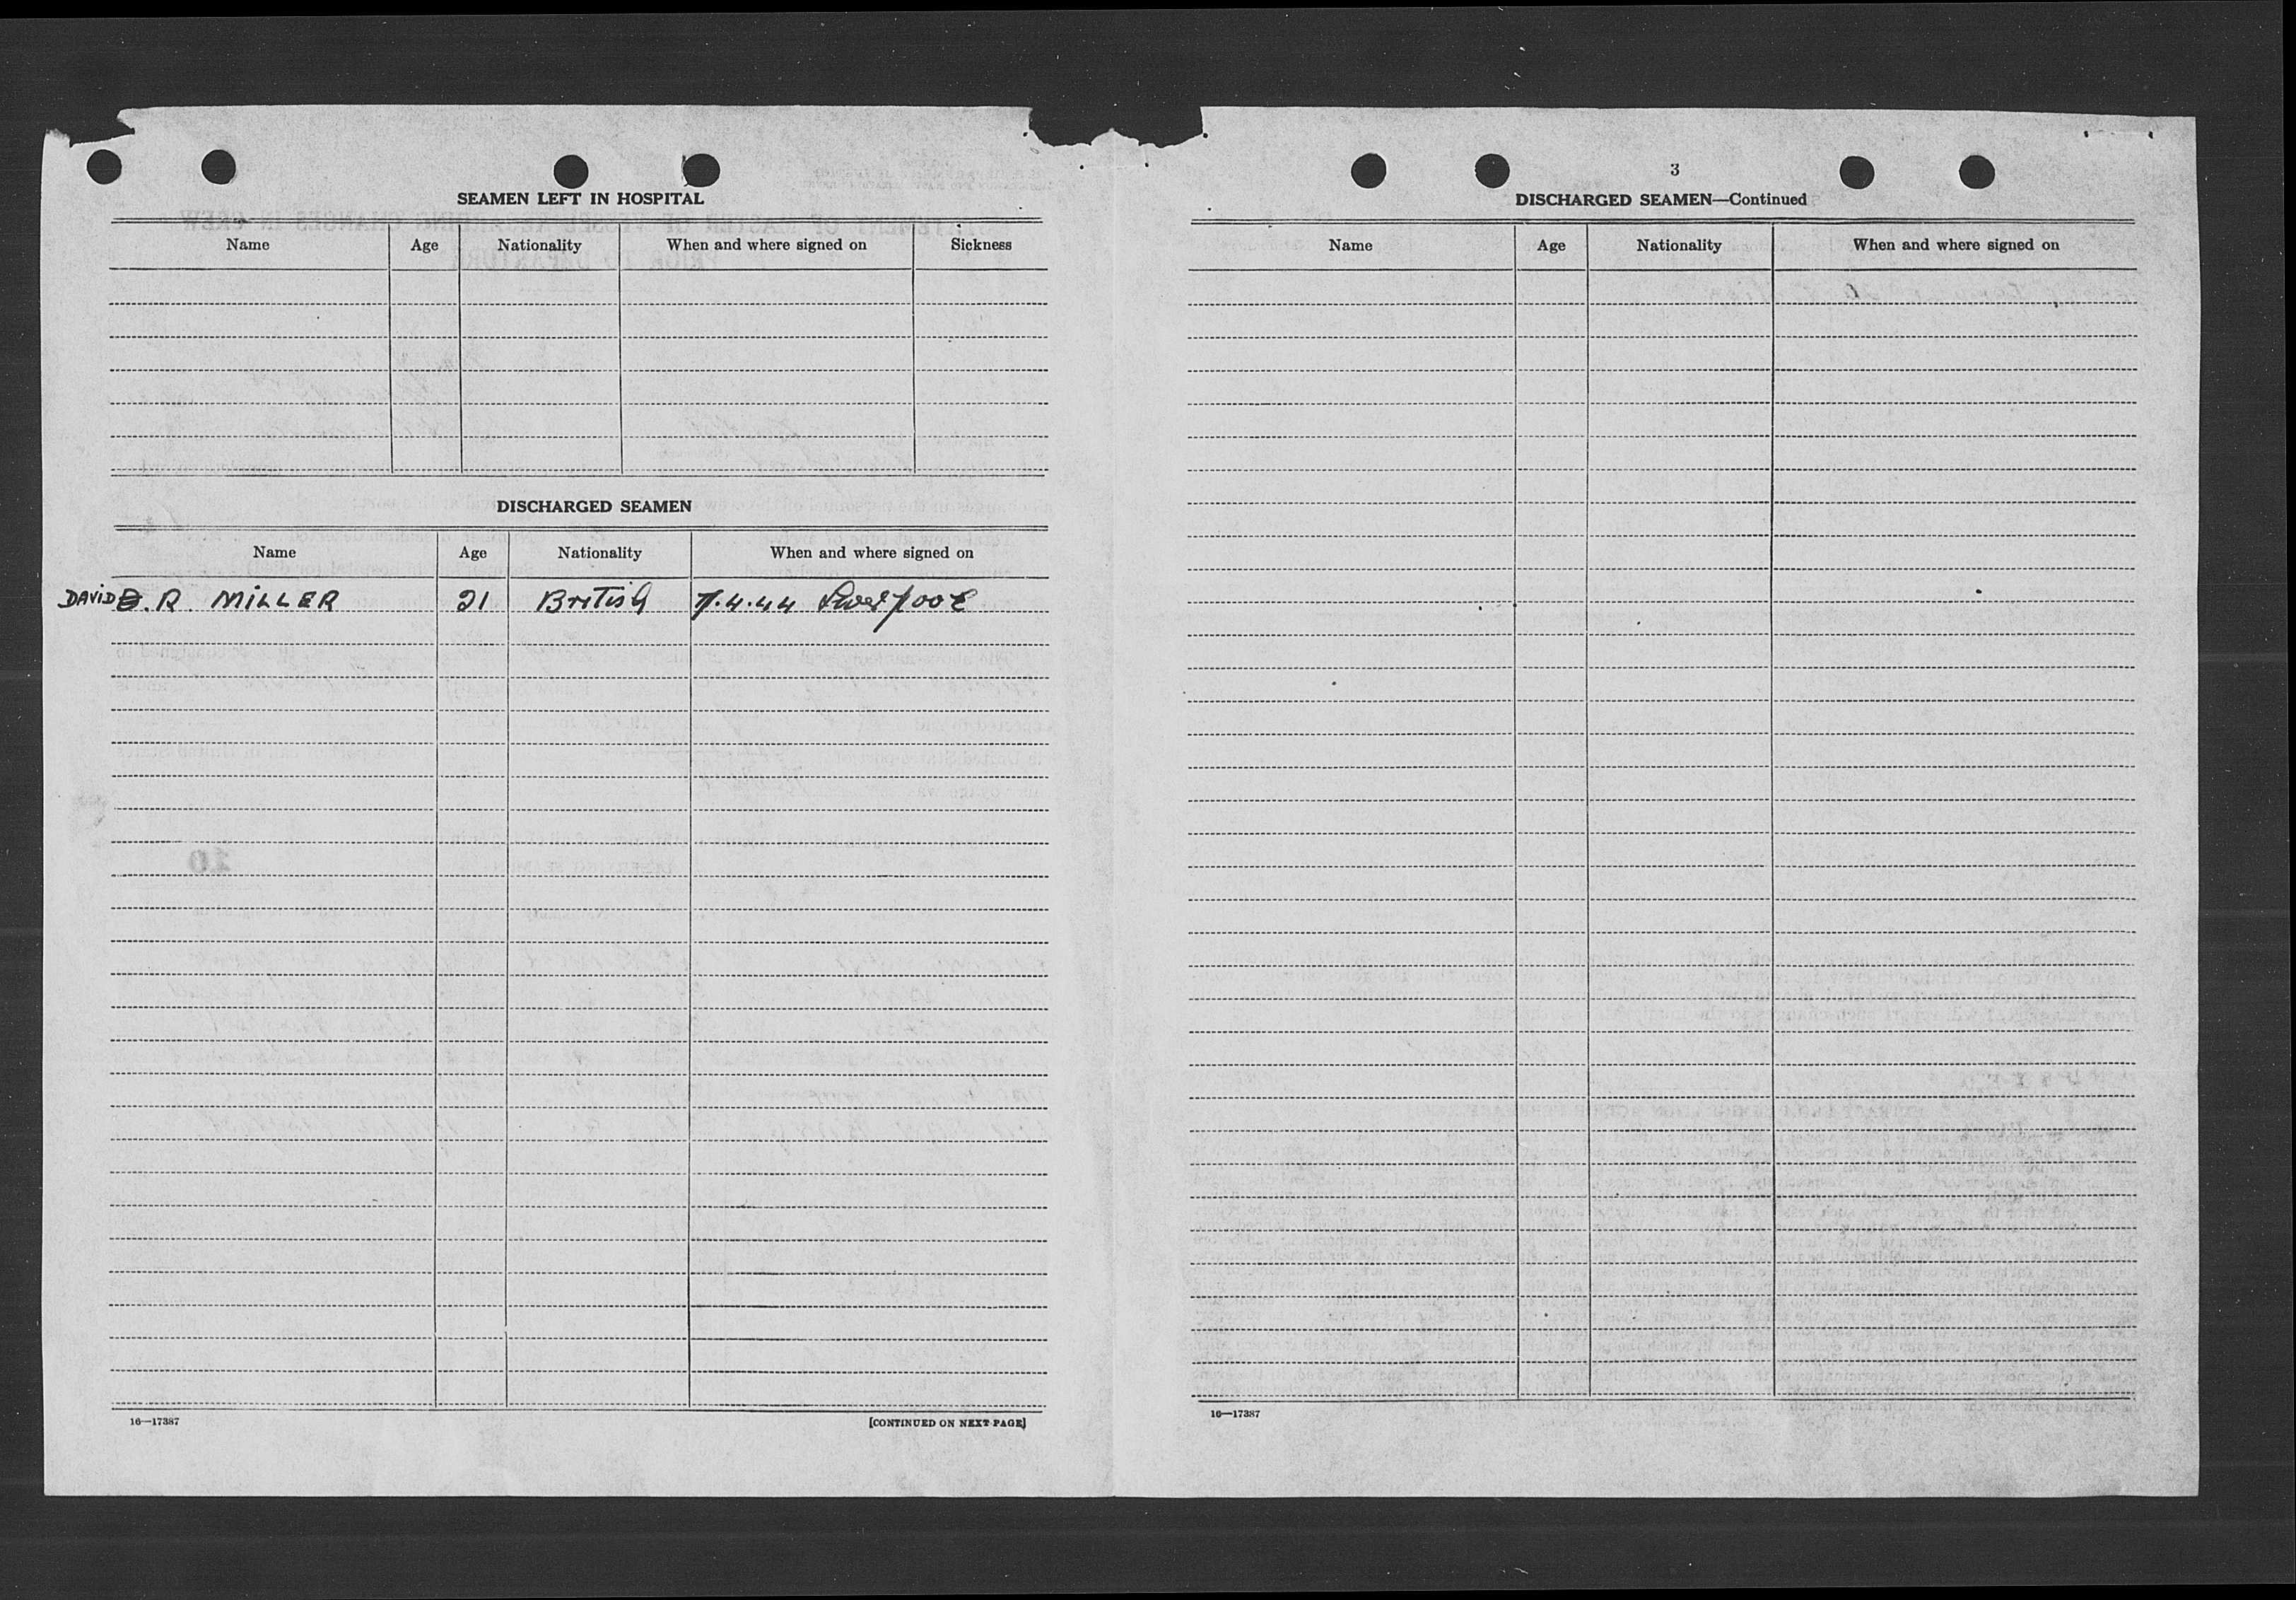 SEAMEN LEFT IN HOSPITAL
Name Age Nationality When and where signed on Sickness
DISCHARGED SEAMEN
Name Age Nationality When and where signed on
DAVID R. MILLER 21 British 7.4.44 Liverpool
16—17387 [CONTINUED ON NEXT PAGE]
3
DISCHARGED SEAMEN—Continued
Name Age Nationality When and where signed on
16—17387